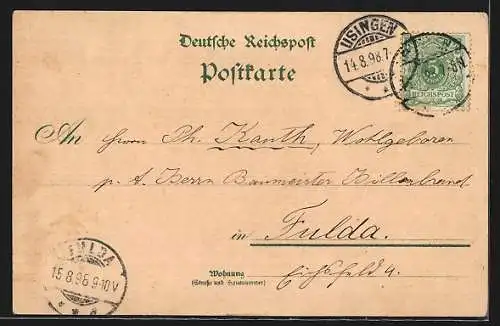 Deutsche Reichspost
Postkarte
USINGEN
14.8.98.7
REICHSPOST
An Herrn Ph. Kanth, Wohlgeboren
p. A. Herrn Baumeister Hillenbrand
in Fulda.
Wohnung
(Straße und Hausnummer)
Eichsfeld 4.
FULDA
15.8.98.9-10V